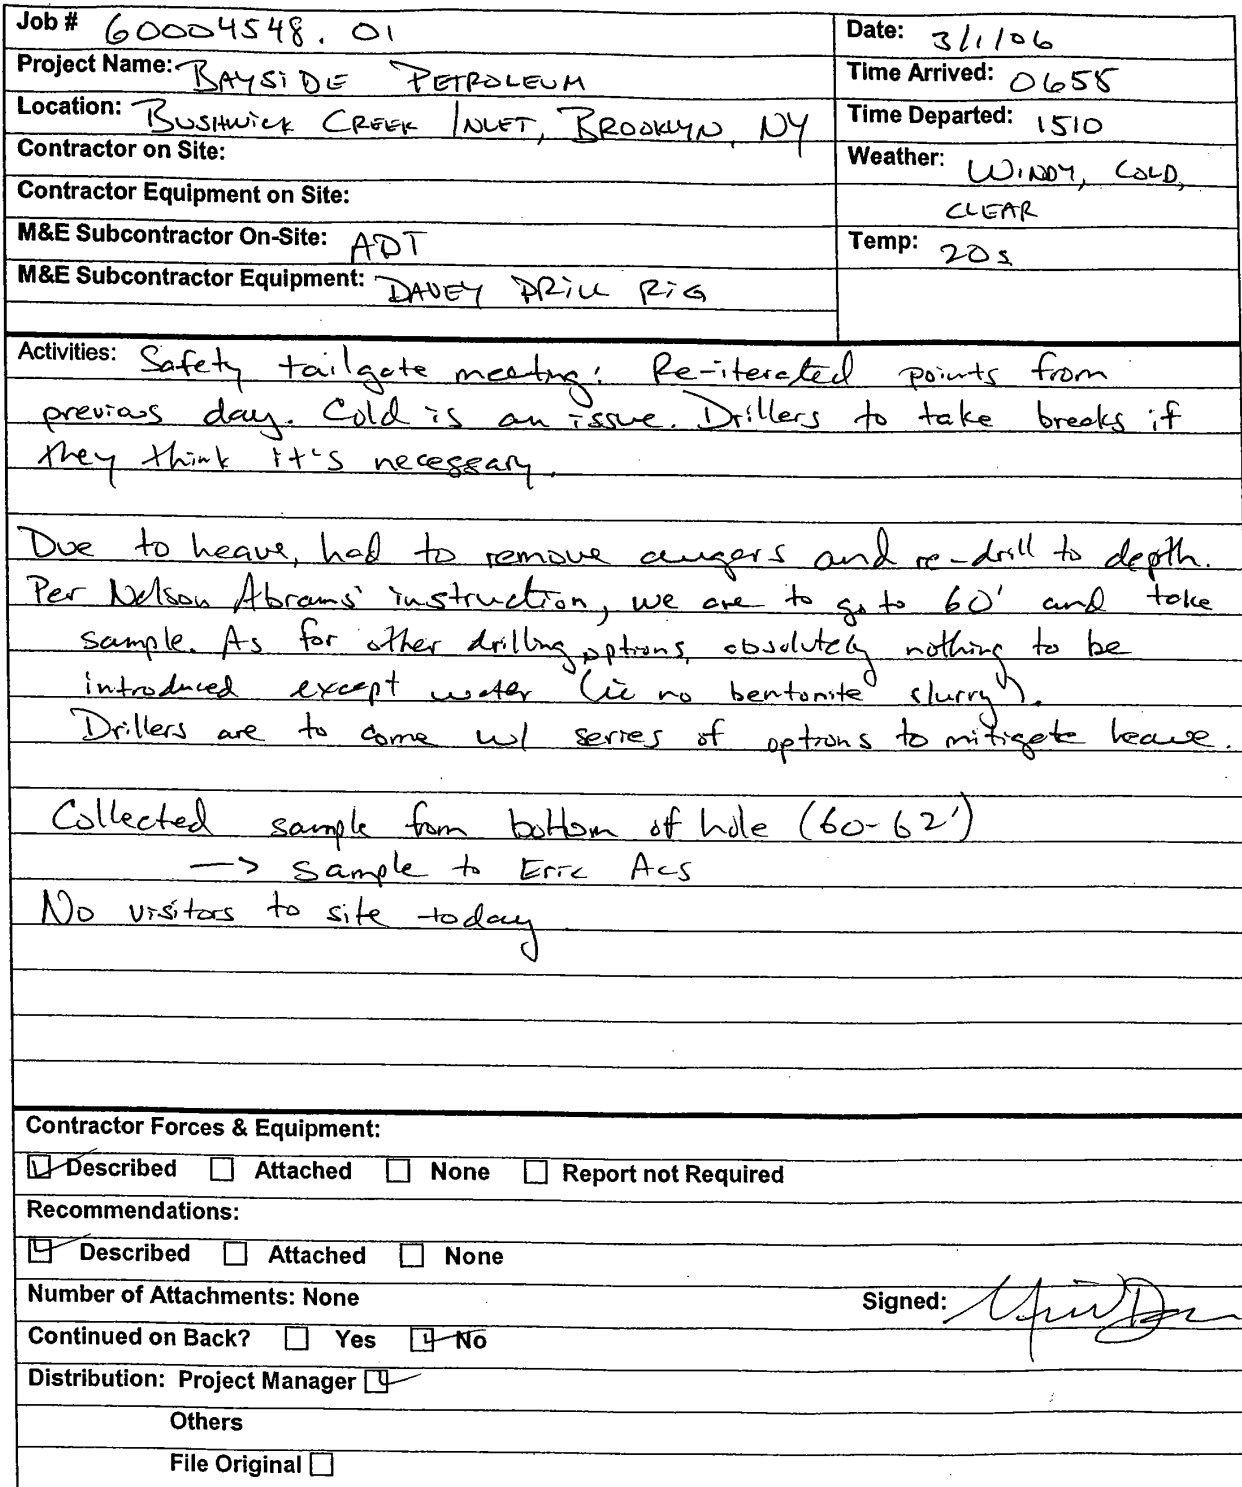 Job # 60004548.01
Date: 3/1/06
Project Name: BAYSIDE PETROLEUM
Time Arrived: 0655
Location: BUSHWICK CREEK INLET, BROOKLYN, NY
Time Departed: 1510
Contractor on Site:
Weather: WINDY, COLD,
CLEAR
Contractor Equipment on Site:
M&E Subcontractor On-Site: ADT
Temp: 20s
M&E Subcontractor Equipment: DAVEY DRILL RIG
Activities: Safety tailgate meeting: Re-iterated points from
previous day. Cold is an issue. Drillers to take breaks if
they think it's necessary.
Due to heave, had to remove augers and re-drill to depth.
Per Nelson Abrams' instruction, we are to go to 60' and take
sample. As for other drilling options, absolutely nothing to be
introduced except water (ie no bentonite slurry).
Drillers are to come w/ series of options to mitigate heave.
Collected sample from bottom of hole (60-62')
—> sample to Eric Acs
No visitors to site today
Contractor Forces & Equipment:
Described Attached None Report not Required
Recommendations:
Described Attached None
Number of Attachments: None
Signed:
Continued on Back? Yes No
Distribution: Project Manager
Others
File Original